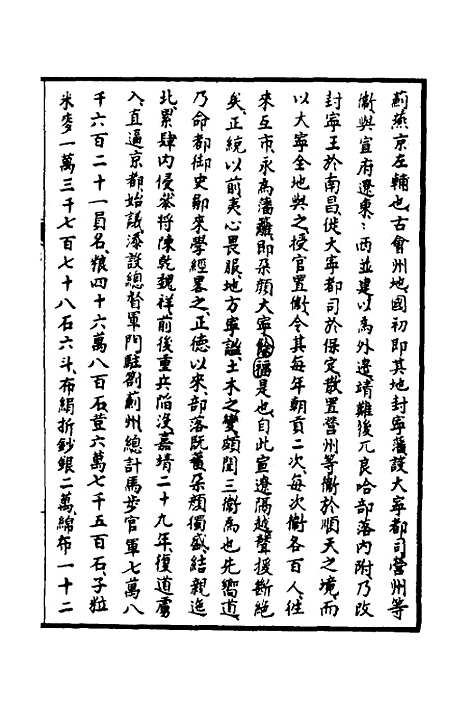 薊燕京左輔也古會州地國初即其地封寧藩設大寧都司營州等
衞與宣府遼東東西並建以爲外邊靖難後兀良哈部落內附乃改
封寧王於南昌徙大寧都司於保定散置營州等衞於順天之境而
以大寧全地與之授官置衞令其每年朝貢二次每次衞各百人徃
來互市永爲藩籬即朶顏大寧福餘是也自此宣遼隔越聲援斷絶
矣正統以前夷心畏服地方寧謐土木之變頗聞三衞爲也先嚮道
乃命都御史鄒來學經畧之正德以來部落旣蕃朶顏獨盛結親迤
北累肆內侵叅將陳乾魏祥前後重兵陷沒嘉靖二十九年復道虜
入直逼京都始議添設總督軍門駐劄薊州總計馬步官軍七萬八
千六百二十一員名糧四十六萬八百石荳六萬七千五百石子粒
米麥一萬三千七百七十八石六斗布絹折鈔銀二萬綿布一十二